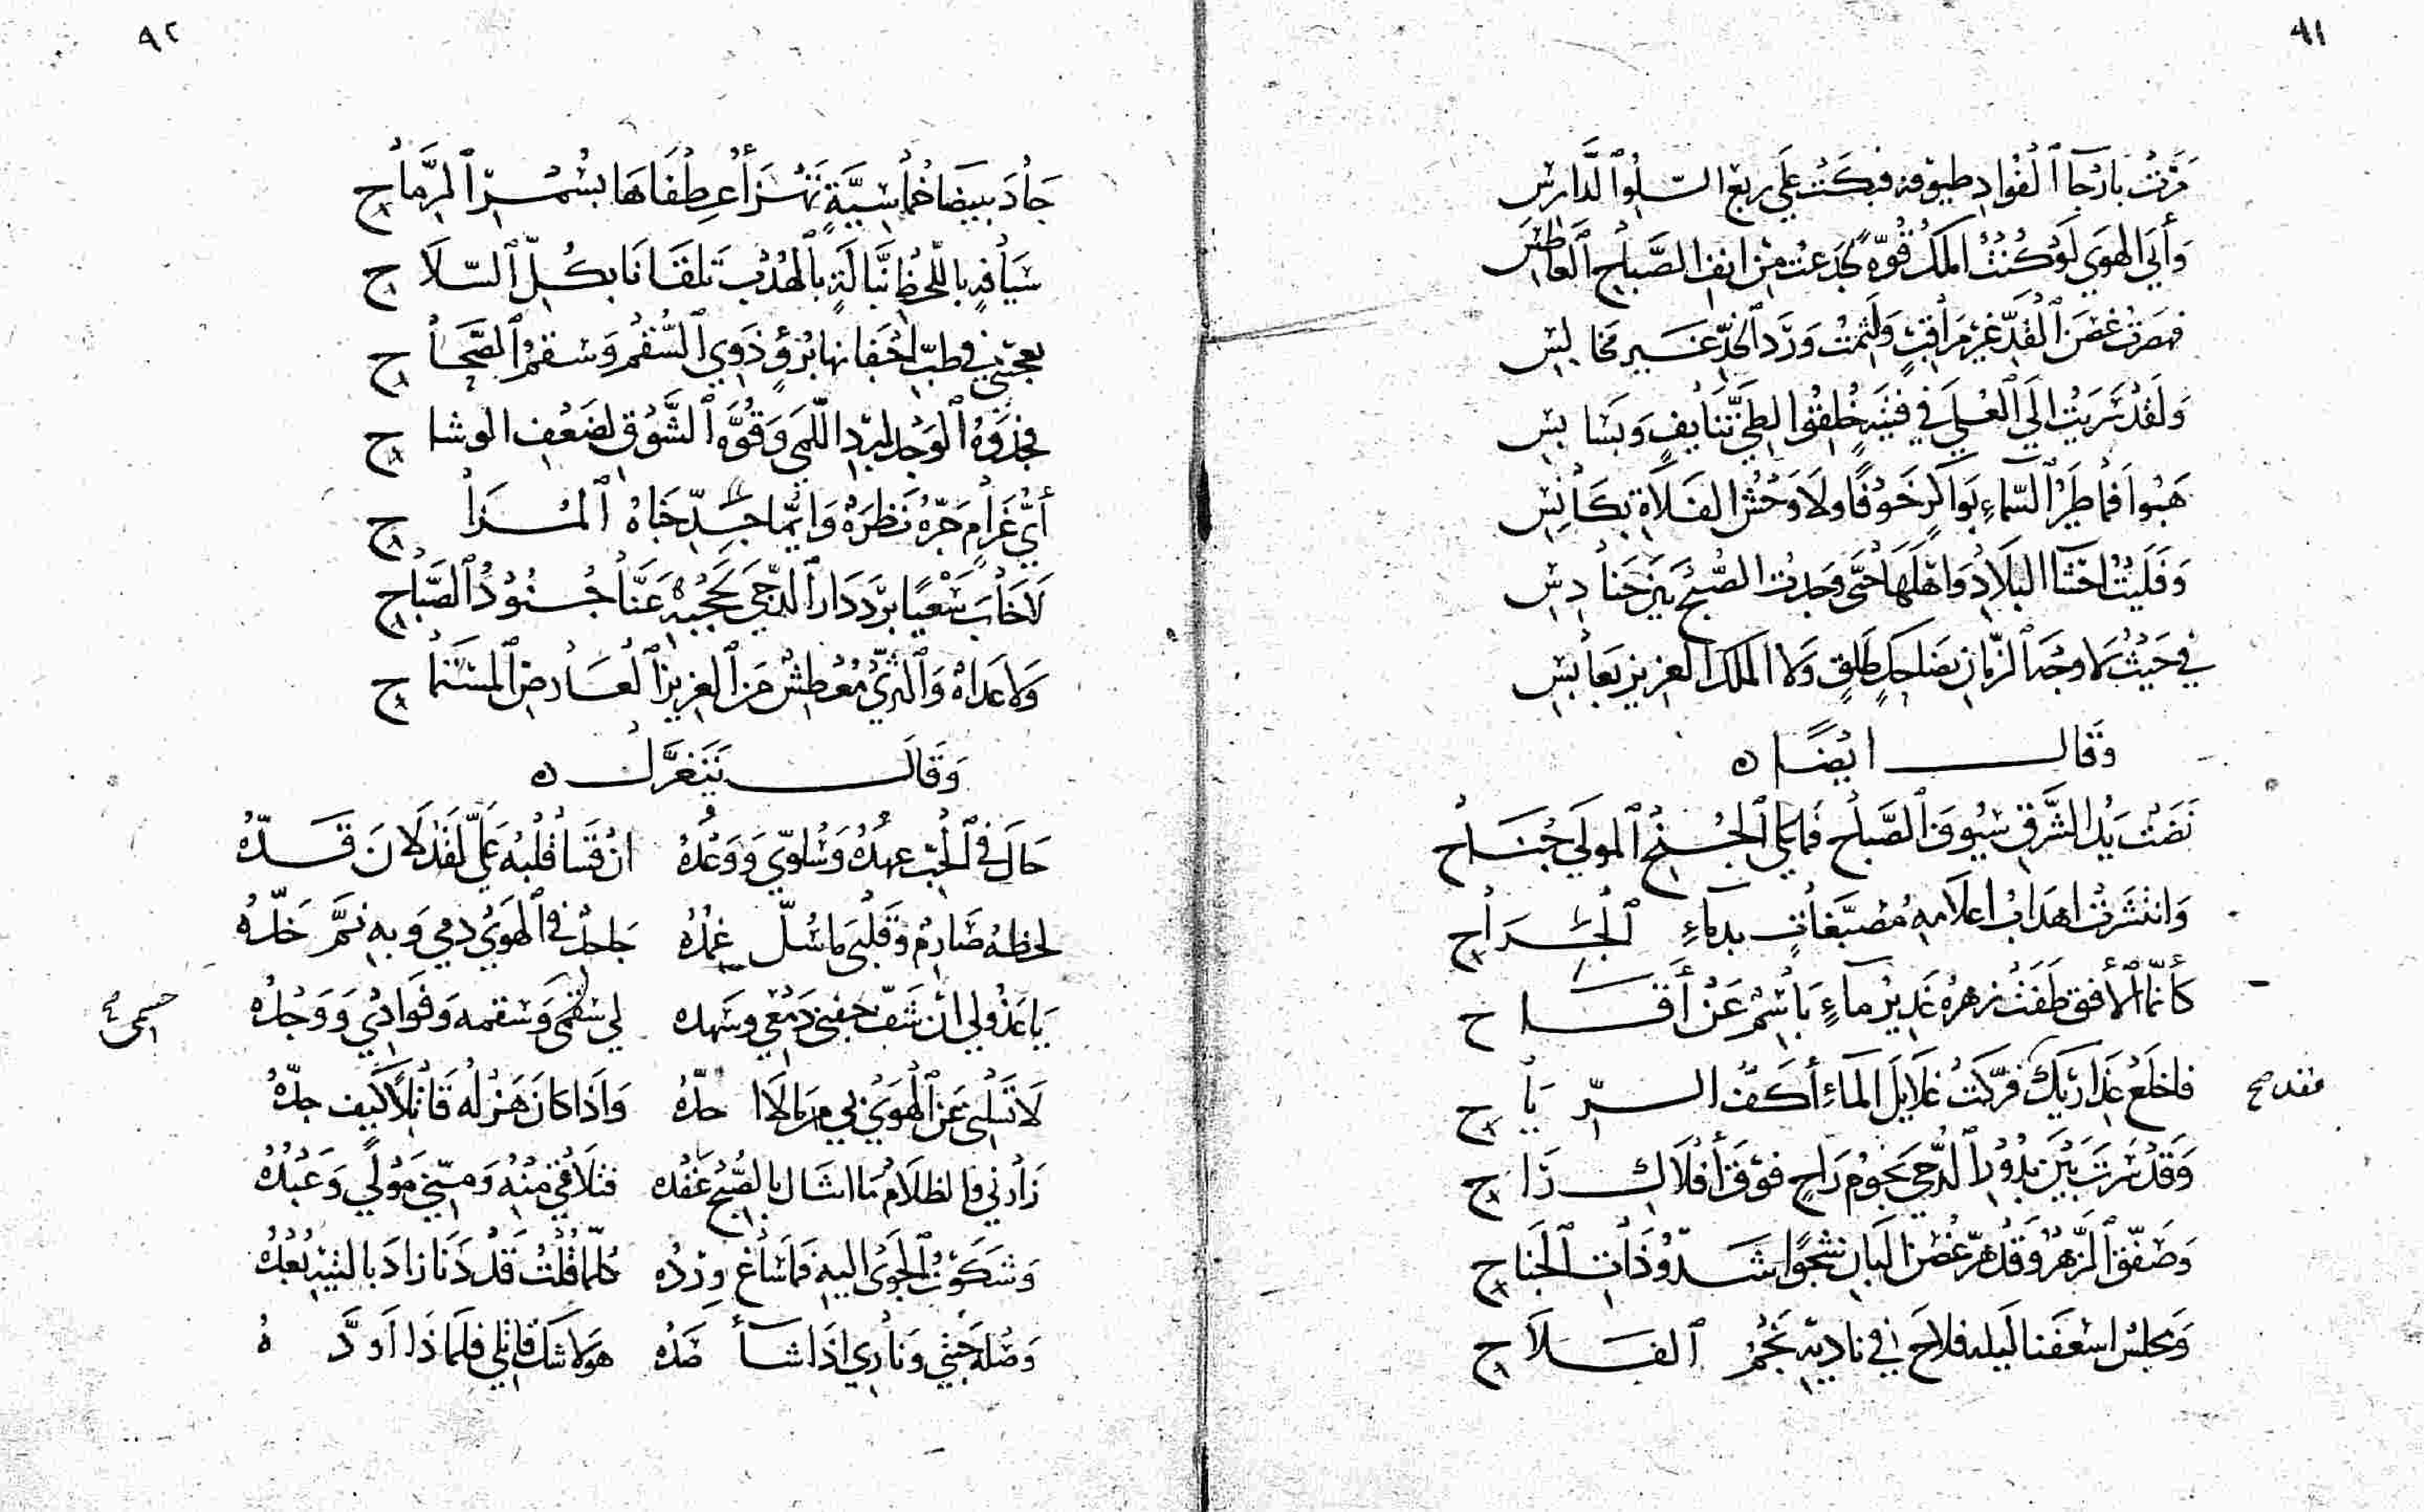 ٩١
مرت بارجآ الفواد طيوفه فبكت على ربع السلو الدارس
وأبى الهوى لو كنت املك قوة لجدعت من انف الصباح العاطس
فهصرت غصن القد غير مراقب ولثمت ورد الخد غير مخالس
ولقد سريت الى العلى في فتية خلقوا لطي تنايف وبسابس
هبوا فما طير السماء بواكر خوفا ولا وحش الفلاة بكانس
وفليت احشا البلاد واهلها حتى وجدت الصبح بين حنادس
في حيث لا وجه الزمان بضاحك طلق ولا الملك العزيز بعابس
وقال ايضا
نضت يد الشرق سيوف الصباح فما على الجنح المولى جناح
وانتشرت اهداب اعلامه مصبغات بدماء الجراح
كأنما الأفق طفت زهره غدير ماء باسم عن أقاح
فاخلع عذاريك فركت غلايل الماء أكف الرياح
وقد سرت بين بدور الدجى نجوم راح فوق أفلاك راح
وصفق الزهر وقد هز غصن البان شجوا شدو ذات الجناح
ومجلس اسعفنا ليله فلاح في ناديه نجم الفلاح
٩٢
جاد ببيضا خماسية تهز أعطفاها بسمر الرماح
سيافة باللحظ نبالة بالهدب تلقانا بكل السلاح
يعجبني في طب اجفانها برؤ ذوي السقم وسقم الصحاح
فجذوة الوجد لبرد اللمى وقوة الشوق لضعف الوشاح
أي غرام جره نظرة وانما جد جناه المزاح
لا خاب سعيا برد دار الدجى تحجبه عنا جنود الصباح
ولا عداه والثرى معطش من العزيز العارض المستماح
وقال يتغزل
حال في الحب عهده وسلوي ووعده ان قسا قلبه علي لقد لان قده
لحظه صارم وقلبى ما سل غمده جاحد في الهوى دمي وبه نم خده
يا عذولي ان شف جفني دمعي وسهده لي سقمى وسقمه وفوادي ووجده
لا تسلنى عن الهوى بي من ما لا حده واذا كان هزله قاتلا كيف جده
زارني والظلام ما انشال بالصبح عقده فتلاقى منه ومني مولى وعبده
وشكوت الجوى اليه فما ساغ ورده كلما قلت قد دنا زاد بالتيه بعده
وصله جنتي وناري اذا شأ صده هو لا شك قاتلي فلماذا اوده